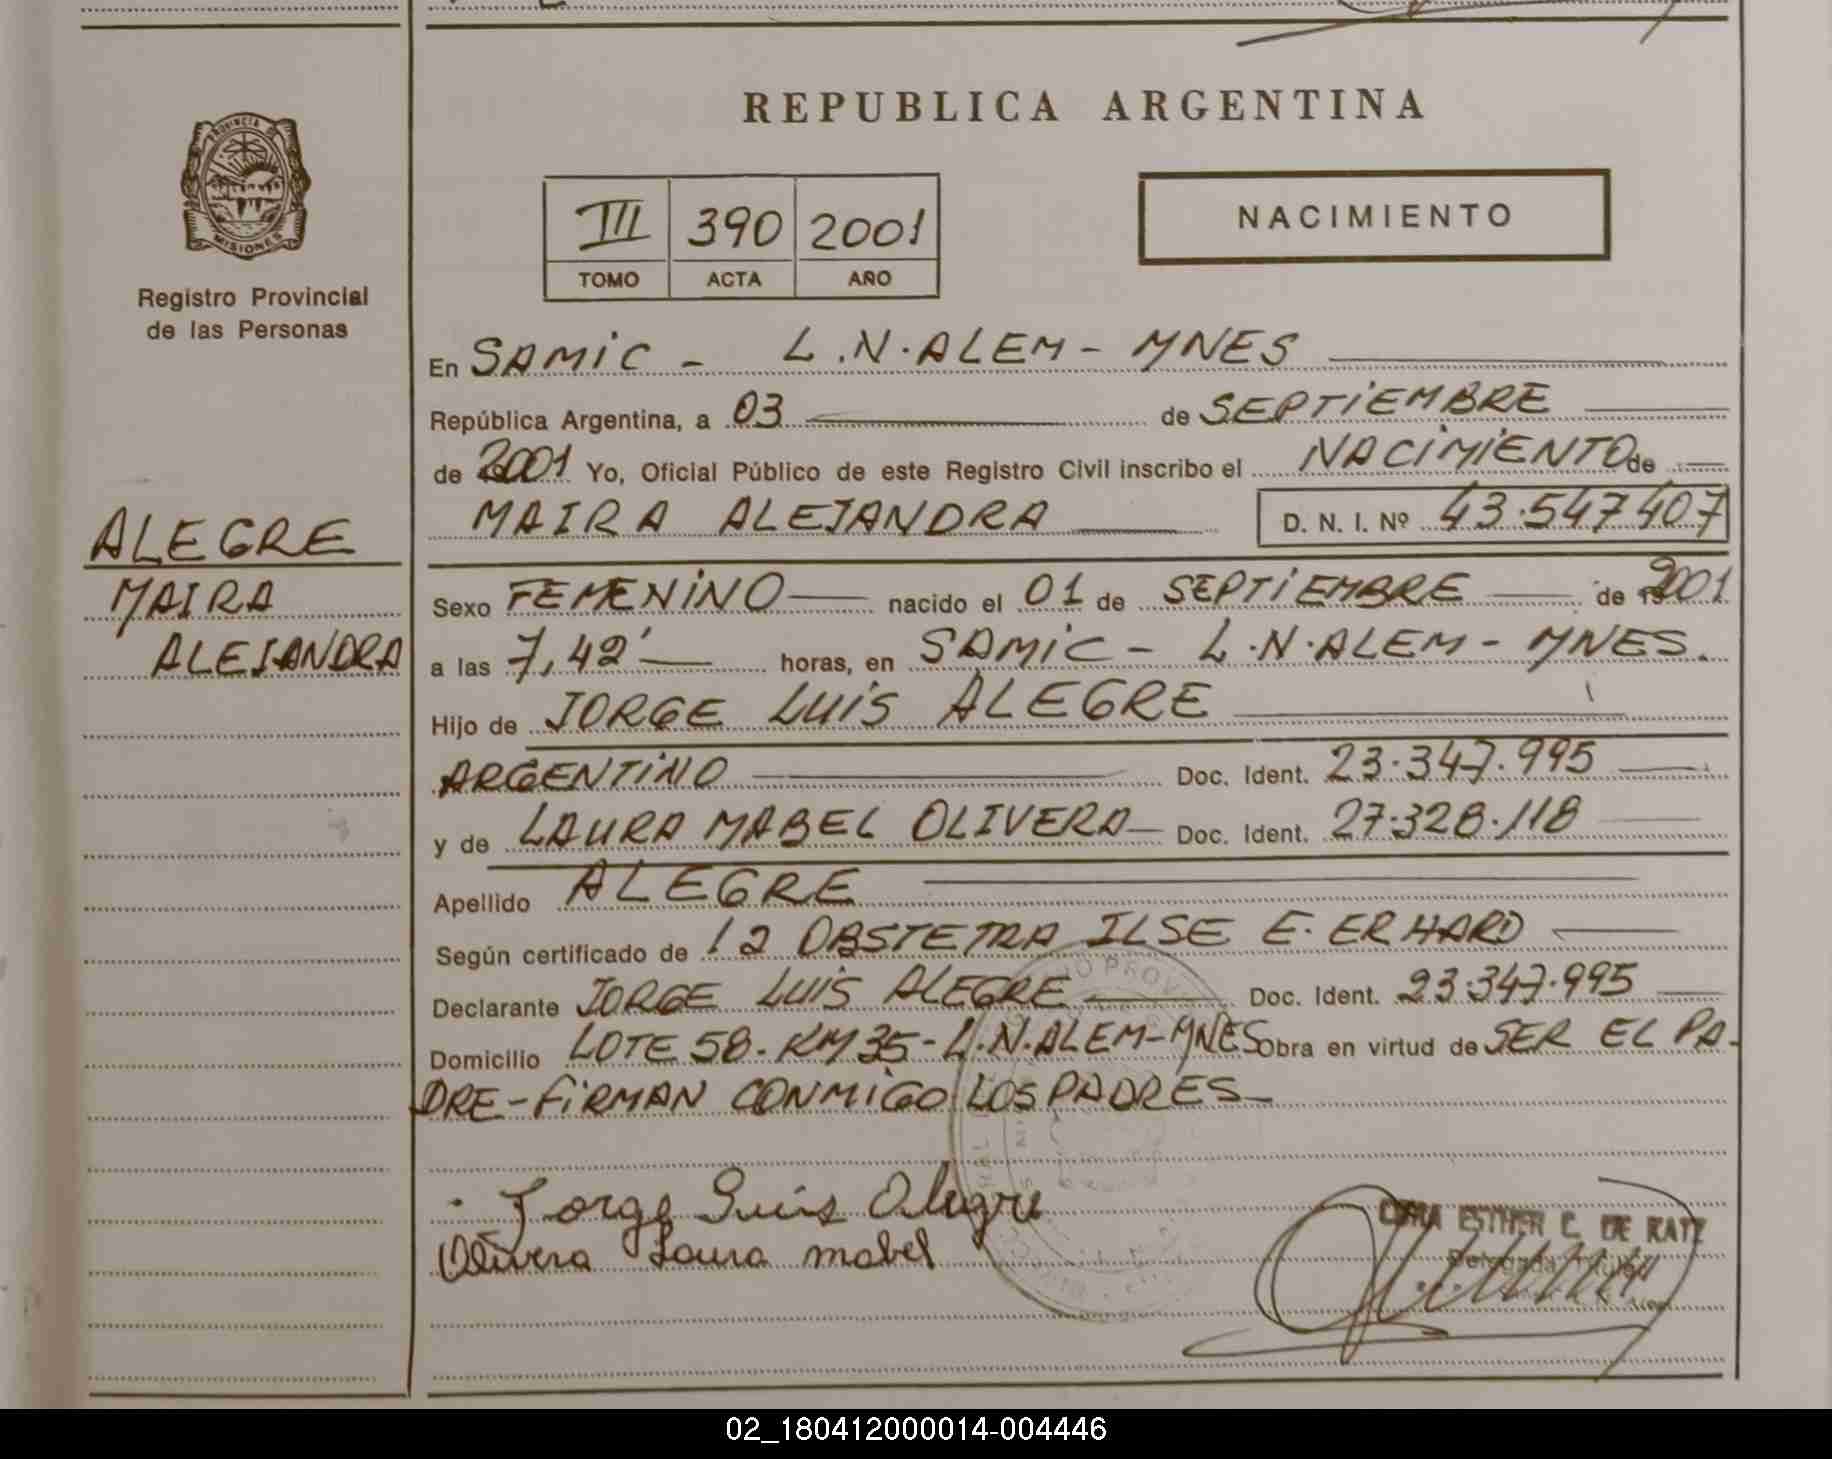 REPUBLICA ARGENTINA
PROVINCIA DE
MISIONES
Registro Provincial
de las Personas
III 390 2001
TOMO ACTA AÑO
NACIMIENTO
En SAMIC - L.N.ALEM - MNES
República Argentina, a 03 de SEPTIEMBRE
de 2001 Yo, Oficial Público de este Registro Civil inscribo el NACIMIENTO de
MAIRA ALEJANDRA D. N. I. Nº 43.547407
ALEGRE
MAIRA
ALEJANDRA
Sexo FEMENINO nacido el 01 de SEPTIEMBRE de 2001
a las 7,42' horas, en SAMIC - L.N.ALEM - MNES.
Hijo de JORGE LUIS ALEGRE
ARGENTINO Doc. Ident. 23.347.995
y de LAURA MABEL OLIVERA Doc. Ident. 27.328.118
Apellido ALEGRE
Según certificado de la OBSTETRA ILSE E. ERHARD
Declarante JORGE LUIS ALEGRE Doc. Ident. 23.347.995
Domicilio LOTE 58. KM 35 - L.N.ALEM-MNES Obra en virtud de SER EL PA-
DRE - FIRMAN CONMIGO LOS PADRES
Jorge Luis Alegre
Olivera Laura mabel
ESTHER C. DE RATZ
Delegada Titular
02_180412000014-004446